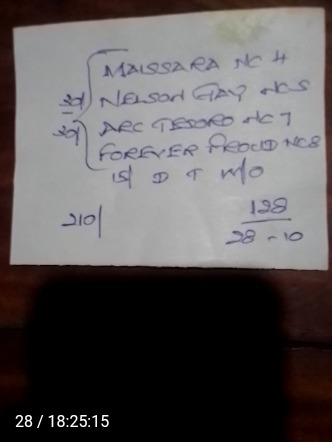 MAISSARA NC 4
30/ NELSON GAY NC5
30/ ARC TESORO NC 7
FOREVER PROUD NC8
15/ D T M/O
210/
128
28-10
28 / 18:25:15